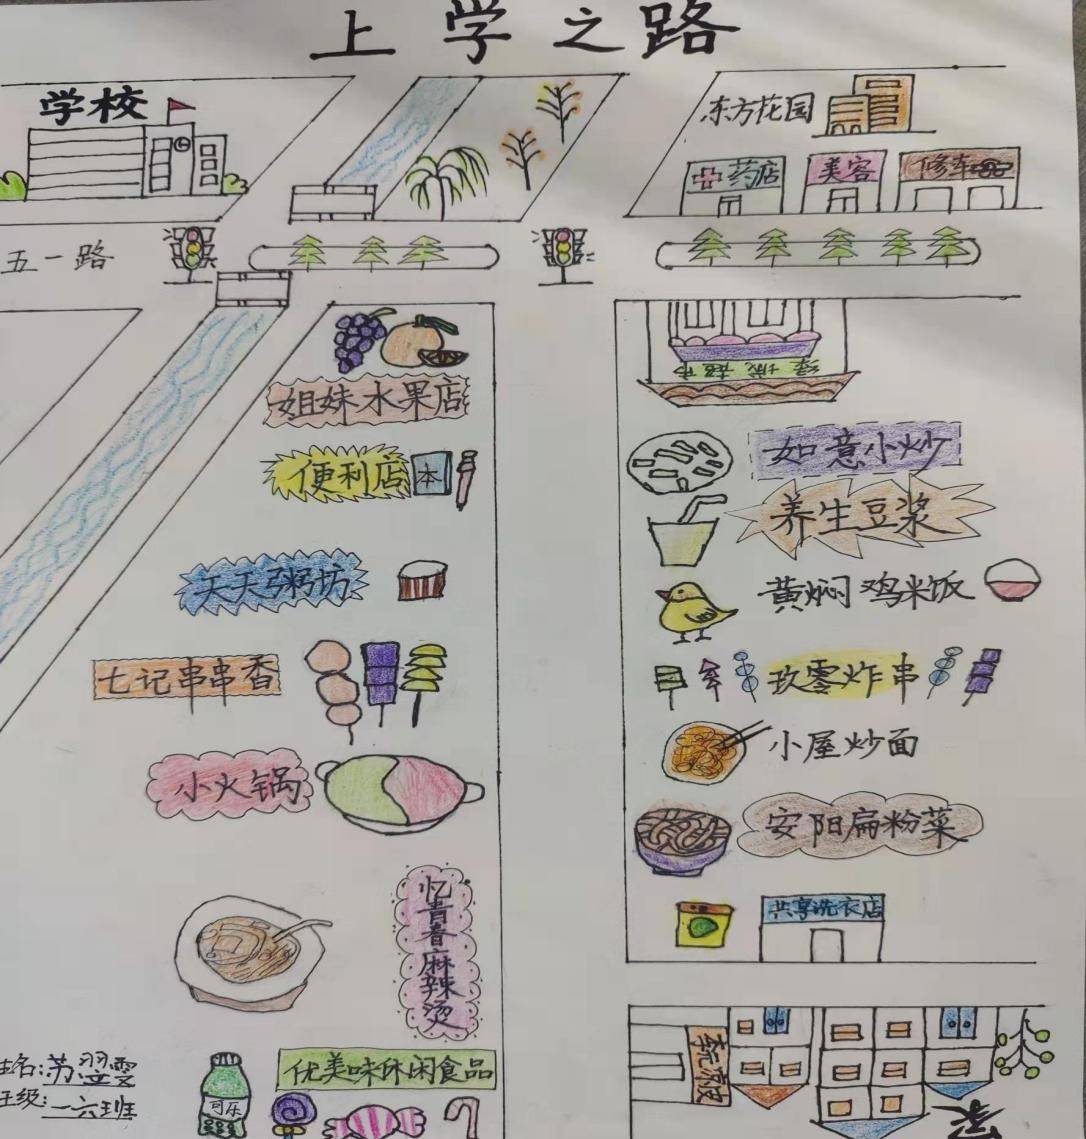 上学之路
学校
东方花园
药店
美容
修车
五一路
姐妹水果店
便利店
本
天天粥坊
七记串串香
小火锅
忆青春麻辣烫
优美味休闲食品
可乐
绿城超市
如意小炒
养生豆浆
黄焖鸡米饭
玖零炸串
小屋炒面
安阳扁粉菜
共享洗衣店
家
姓名:苏翌雯
班级:一六班